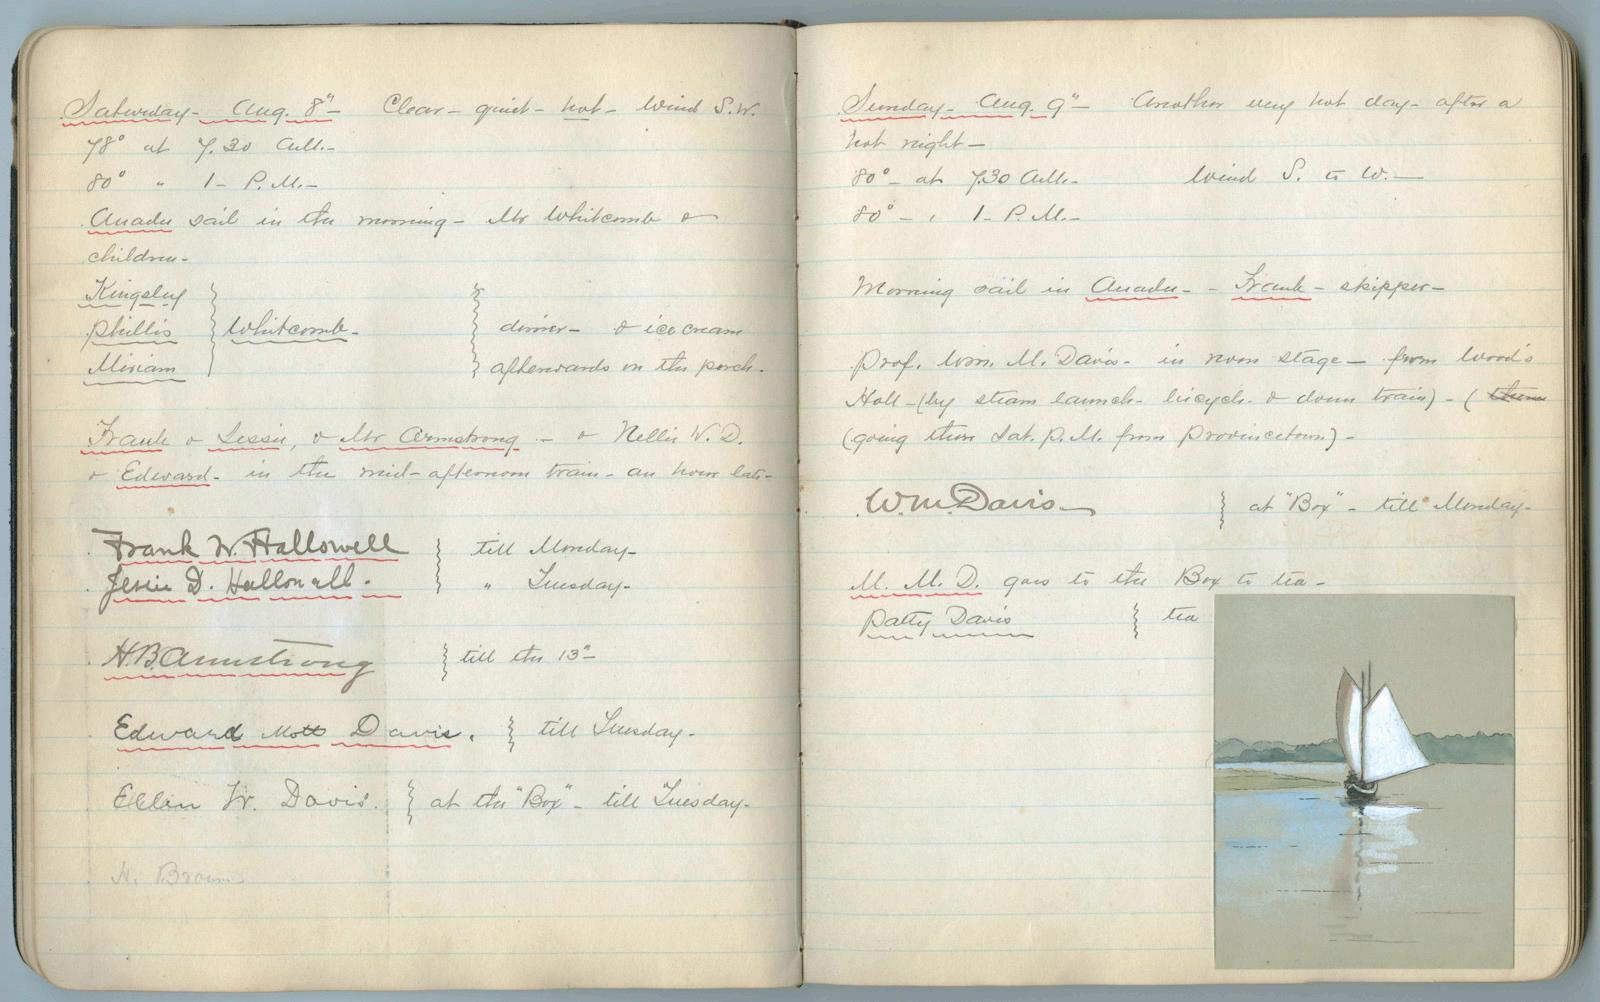 Saturday- Aug. 8"- Clear- quiet- hot- Wind S.W.
78° at 7.30 A.M.-
80° " 1- P.M.-
Anadu sail in the morning- Mr Whitcomb &
children-
Kingsley
Phillis } Whitcomb- } dinner- & ice cream
Miriam afterwards on the porch.
Frank & Jessie, & Mr Armstrong - & Nellie W. D.
& Edward- in the mid-afternoon train- an hour late-
Frank W. Hallowell } till Monday-
Jessie D. Hallowell. } " Tuesday-
H.B. Armstrong } till the 13"-
Edward Mott Davis. } till Tuesday-
Ellen W. Davis. } at the "Box"- till Tuesday-
H. Brown
Sunday- Aug. 9"- Another very hot day- after a
hot night-
80°- at 7.30 A.M.- Wind S. to W.-
80°- " 1- P.M.-
Morning sail in Anadu- - Frank- skipper-
Prof. Wm. M. Davis- in noon stage- from Wood's
Holl-(by steam launch- bicycle- & down train)- (
(going there Sat. P.M. from Provincetown)-
W.M. Davis } at "Box"- till Monday-
M. M. D. goes to the Box to tea-
Patty Davis } tea